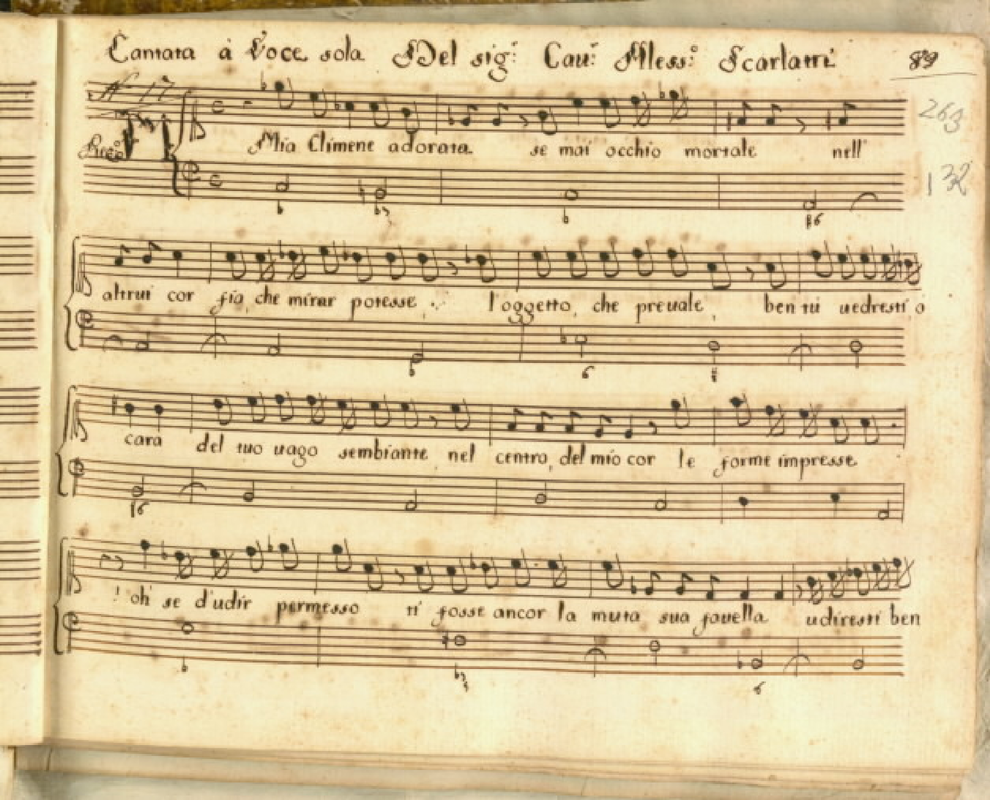 Cantata à Voce sola Del sig.r Cau.r Aless.o Scarlatti
89
263
132
N. 17
Rec.o
Mia Climene adorata se mai occhio mortale nell'
altrui cor fia, che mirar potesse l'oggetto, che preuale, ben tu uedresti o
cara del tuo uago sembiante nel centro, del mio cor le forme impresse
oh se d'udir permesso ti fosse ancor la muta sua fauella udiresti ben